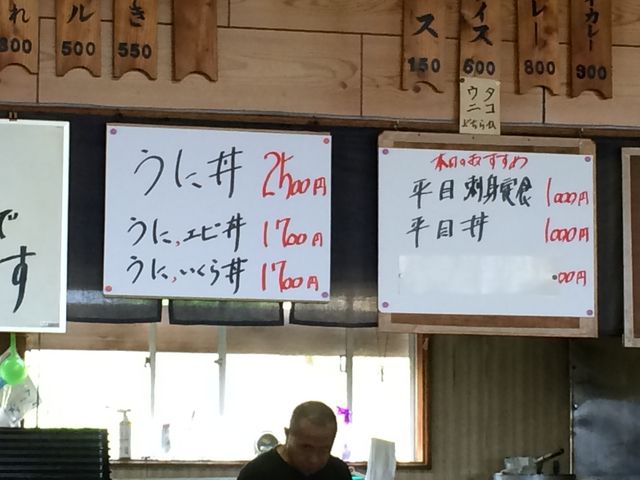 れ
800
ル
500
き
550
ス
150
イス
600
レー
800
イカレー
900
タコ
ウニ
どちらか
です
うに丼 2500円
うに、エビ丼 1700円
うに、いくら丼 1700円
本日のおすすめ
平目 刺身定食 1000円
平目 丼 1000円
00円